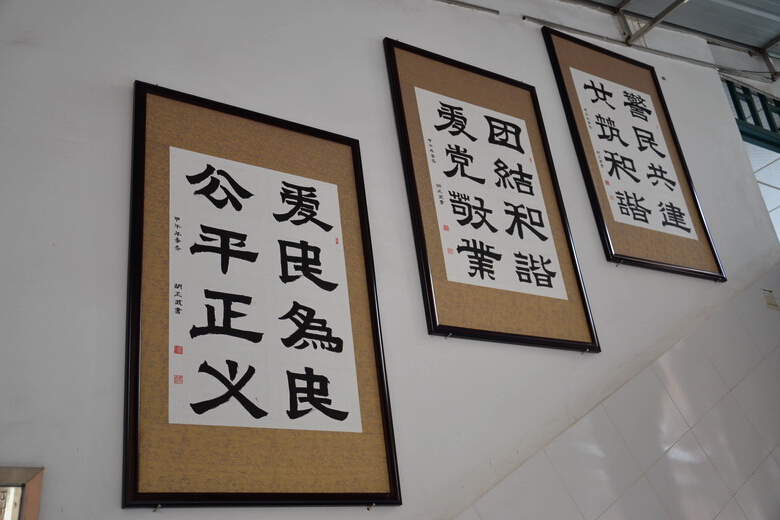 爱民為民
公平正义
甲午年
团結和諧
爱党敬業
甲午年
警民共建
共筑和諧